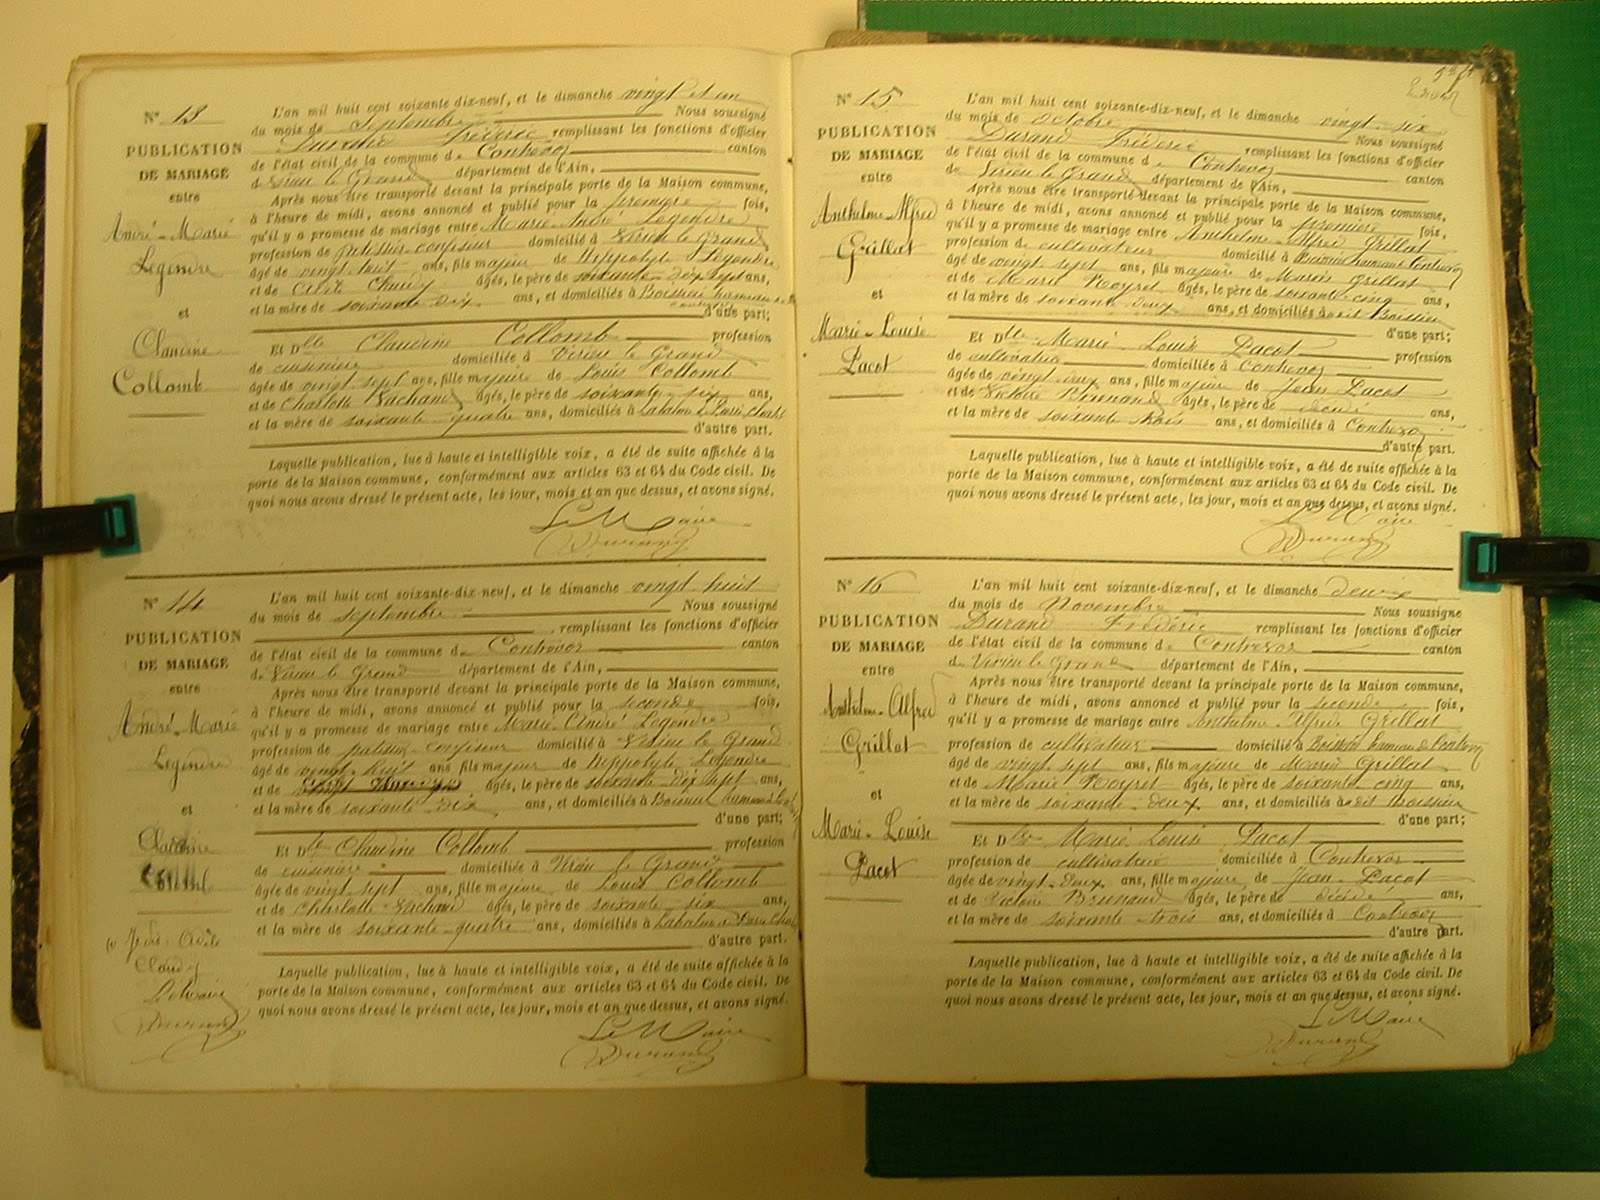 Nº 13
PUBLICATION
DE MARIAGE
entre
André-Marie
Legendre
et
Claudine
Collomb
L'an mil huit cent soixante dix-neuf, et le dimanche vingt et un
du mois de Septembre Nous soussigné
Durand Frédéric remplissant les fonctions d'officier
de l'état civil de la commune de Contrevoz canton
de Virieu le Grand département de l'Ain,
Après nous être transporté devant la principale porte de la Maison commune,
à l'heure de midi, avons annoncé et publié pour la première fois,
qu'il y a promesse de mariage entre Marie-André Legendre
profession de patissier-confiseur domicilié à Virieu le Grand
âgé de vingt huit ans, fils majeur de Hippolyte Legendre
et de âgés, le père de soixante dix sept ans,
et la mère de soixante dix ans, et domiciliés à Boissieu hameau de
d'une part;
Et Dlle Claudine Collomb profession
de cuisinière domiciliée à Virieu le Grand
âgée de vingt sept ans, fille majeure de Louis Collomb
et de Charlotte Vachand âgés, le père de soixante six ans,
et la mère de soixante quatre ans, domiciliés à
d'autre part.
Laquelle publication, lue à haute et intelligible voix, a été de suite affichée à la
porte de la Maison commune, conformément aux articles 63 et 64 du Code civil. De
quoi nous avons dressé le présent acte, les jour, mois et an que dessus, et avons signé.
Le Maire
Durand
Nº 14
PUBLICATION
DE MARIAGE
entre
André-Marie
Legendre
et
Claudine
L'an mil huit cent soixante-dix-neuf, et le dimanche vingt huit
du mois de septembre Nous soussigné
remplissant les fonctions d'officier
de l'état civil de la commune de Contrevoz canton
de Virieu le Grand département de l'Ain,
Après nous être transporté devant la principale porte de la Maison commune,
à l'heure de midi, avons annoncé et publié pour la seconde fois,
qu'il y a promesse de mariage entre Marie-André Legendre
profession de patissier-confiseur domicilié à Virieu le Grand
âgé de vingt-huit ans fils majeur de Hippolyte Legendre
et de âgés, le père de soixante dix sept ans,
et la mère de soixante-dix ans, et domiciliés à Boissieu hameau de
d'une part;
Et Dlle Claudine Collomb profession
de cuisinière domiciliée à Virieu le Grand
âgée de vingt sept ans, fille majeure de Louis Collomb
et de Charlotte Vachand âgés, le père de soixante six ans,
et la mère de soixante-quatre ans, domiciliés à
d'autre part.
Laquelle publication, lue à haute et intelligible voix, a été de suite affichée à la
porte de la Maison commune, conformément aux articles 63 et 64 du Code civil. De
quoi nous avons dressé le présent acte, les jour, mois et an que dessus, et avons signé.
Le Maire
Durand
Durand
Nº 15
PUBLICATION
DE MARIAGE
entre
Anthelme-Alfred
Grillat
et
Marie-Louise
Pacot
L'an mil huit cent soixante-dix-neuf, et le dimanche vingt-six
du mois de Octobre Nous soussigné
Durand Frédéric remplissant les fonctions d'officier
de l'état civil de la commune de Contrevoz canton
de Virieu le Grand département de l'Ain,
Après nous être transporté devant la principale porte de la Maison commune,
à l'heure de midi, avons annoncé et publié pour la première fois,
qu'il y a promesse de mariage entre Anthelme-Alfred Grillat
profession de cultivateur domicilié à Boissieu hameau de Contrevoz
âgé de vingt sept ans, fils majeur de Marin Grillat
et de Marie Reyret âgés, le père de soixante cinq ans,
et la mère de soixante deux ans, et domiciliés à dit Boissieu
d'une part;
Et Dlle Marie-Louise Pacot profession
de cultivatrice domiciliée à Contrevoz
âgée de vingt deux ans, fille majeure de Jean Pacot
et de Victoire Brunand âgés, le père de décédé ans,
et la mère de soixante trois ans, et domiciliés à Contrevoz
d'autre part.
Laquelle publication, lue à haute et intelligible voix, a été de suite affichée à la
porte de la Maison commune, conformément aux articles 63 et 64 du Code civil. De
quoi nous avons dressé le présent acte, les jour, mois et an que dessus, et avons signé.
Le Maire
Durand
Nº 16
PUBLICATION
DE MARIAGE
entre
Anthelme-Alfred
Grillat
et
Marie-Louise
Pacot
L'an mil huit cent soixante-dix-neuf, et le dimanche deux
du mois de Novembre Nous soussigné
Durand Frédéric remplissant les fonctions d'officier
de l'état civil de la commune de Contrevoz canton
de Virieu le Grand département de l'Ain,
Après nous être transporté devant la principale porte de la Maison commune,
à l'heure de midi, avons annoncé et publié pour la seconde fois,
qu'il y a promesse de mariage entre Anthelme-Alfred Grillat
profession de cultivateur domicilié à Boissieu hameau de Contrevoz
âgé de vingt sept ans, fils majeur de Marin Grillat
et de Marie Reyret âgés, le père de soixante cinq ans,
et la mère de soixante-deux ans, et domiciliés à dit Boissieu
d'une part;
Et Dlle Marie Louise Pacot
profession de cultivatrice domiciliée à Contrevoz
âgée de vingt-deux ans, fille majeure de Jean Pacot
et de Victoire Brunand âgés, le père de décédé ans,
et la mère de soixante-trois ans, et domiciliés à Contrevoz
d'autre part.
Laquelle publication, lue à haute et intelligible voix, a été de suite affichée à la
porte de la Maison commune, conformément aux articles 63 et 64 du Code civil. De
quoi nous avons dressé le présent acte, les jour, mois et an que dessus, et avons signé.
Le Maire
Durand